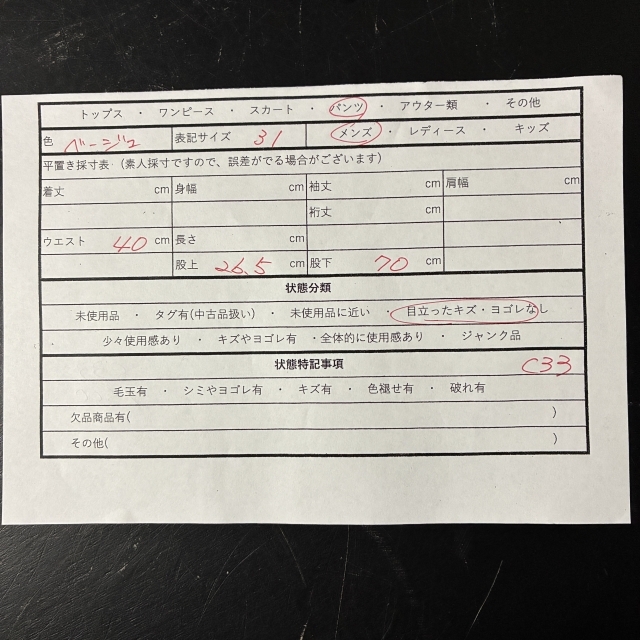 トップス ・ ワンピース ・ スカート ・ パンツ ・ アウター類 ・ その他
色 ベージュ 表記サイズ 31 メンズ ・ レディース ・ キッズ
平置き採寸表（素人採寸ですので、誤差がでる場合がございます）
着丈 cm 身幅 cm 袖丈 cm 肩幅 cm
裄丈 cm
ウエスト 40 cm 長さ cm
股上 26.5 cm 股下 70 cm
状態分類
未使用品 ・ タグ有(中古品扱い) ・ 未使用品に近い ・ 目立ったキズ・ヨゴレなし
少々使用感あり ・ キズやヨゴレ有 ・全体的に使用感あり ・ ジャンク品
状態特記事項 C33
毛玉有 ・ シミやヨゴレ有 ・ キズ有 ・ 色褪せ有 ・ 破れ有
欠品商品有( )
その他( )